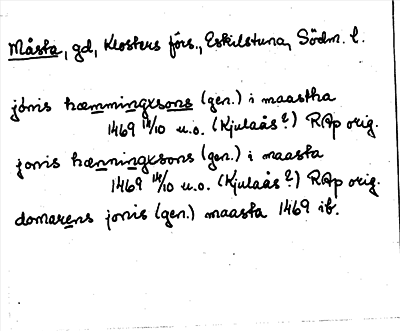 Måsta, gd, Klosters förs., Eskilstuna, Södm. l.
jönis hæmmingxsons (gen.) i maastha
1469 14/10 u.o. (Kjulaås?) RAp orig.
jonis hænningxsons (gen.) i maasta
1469 14/10 u.o. (Kjulaås?) RAp orig.
domarens jonis (gen.) maasta 1469 ib.